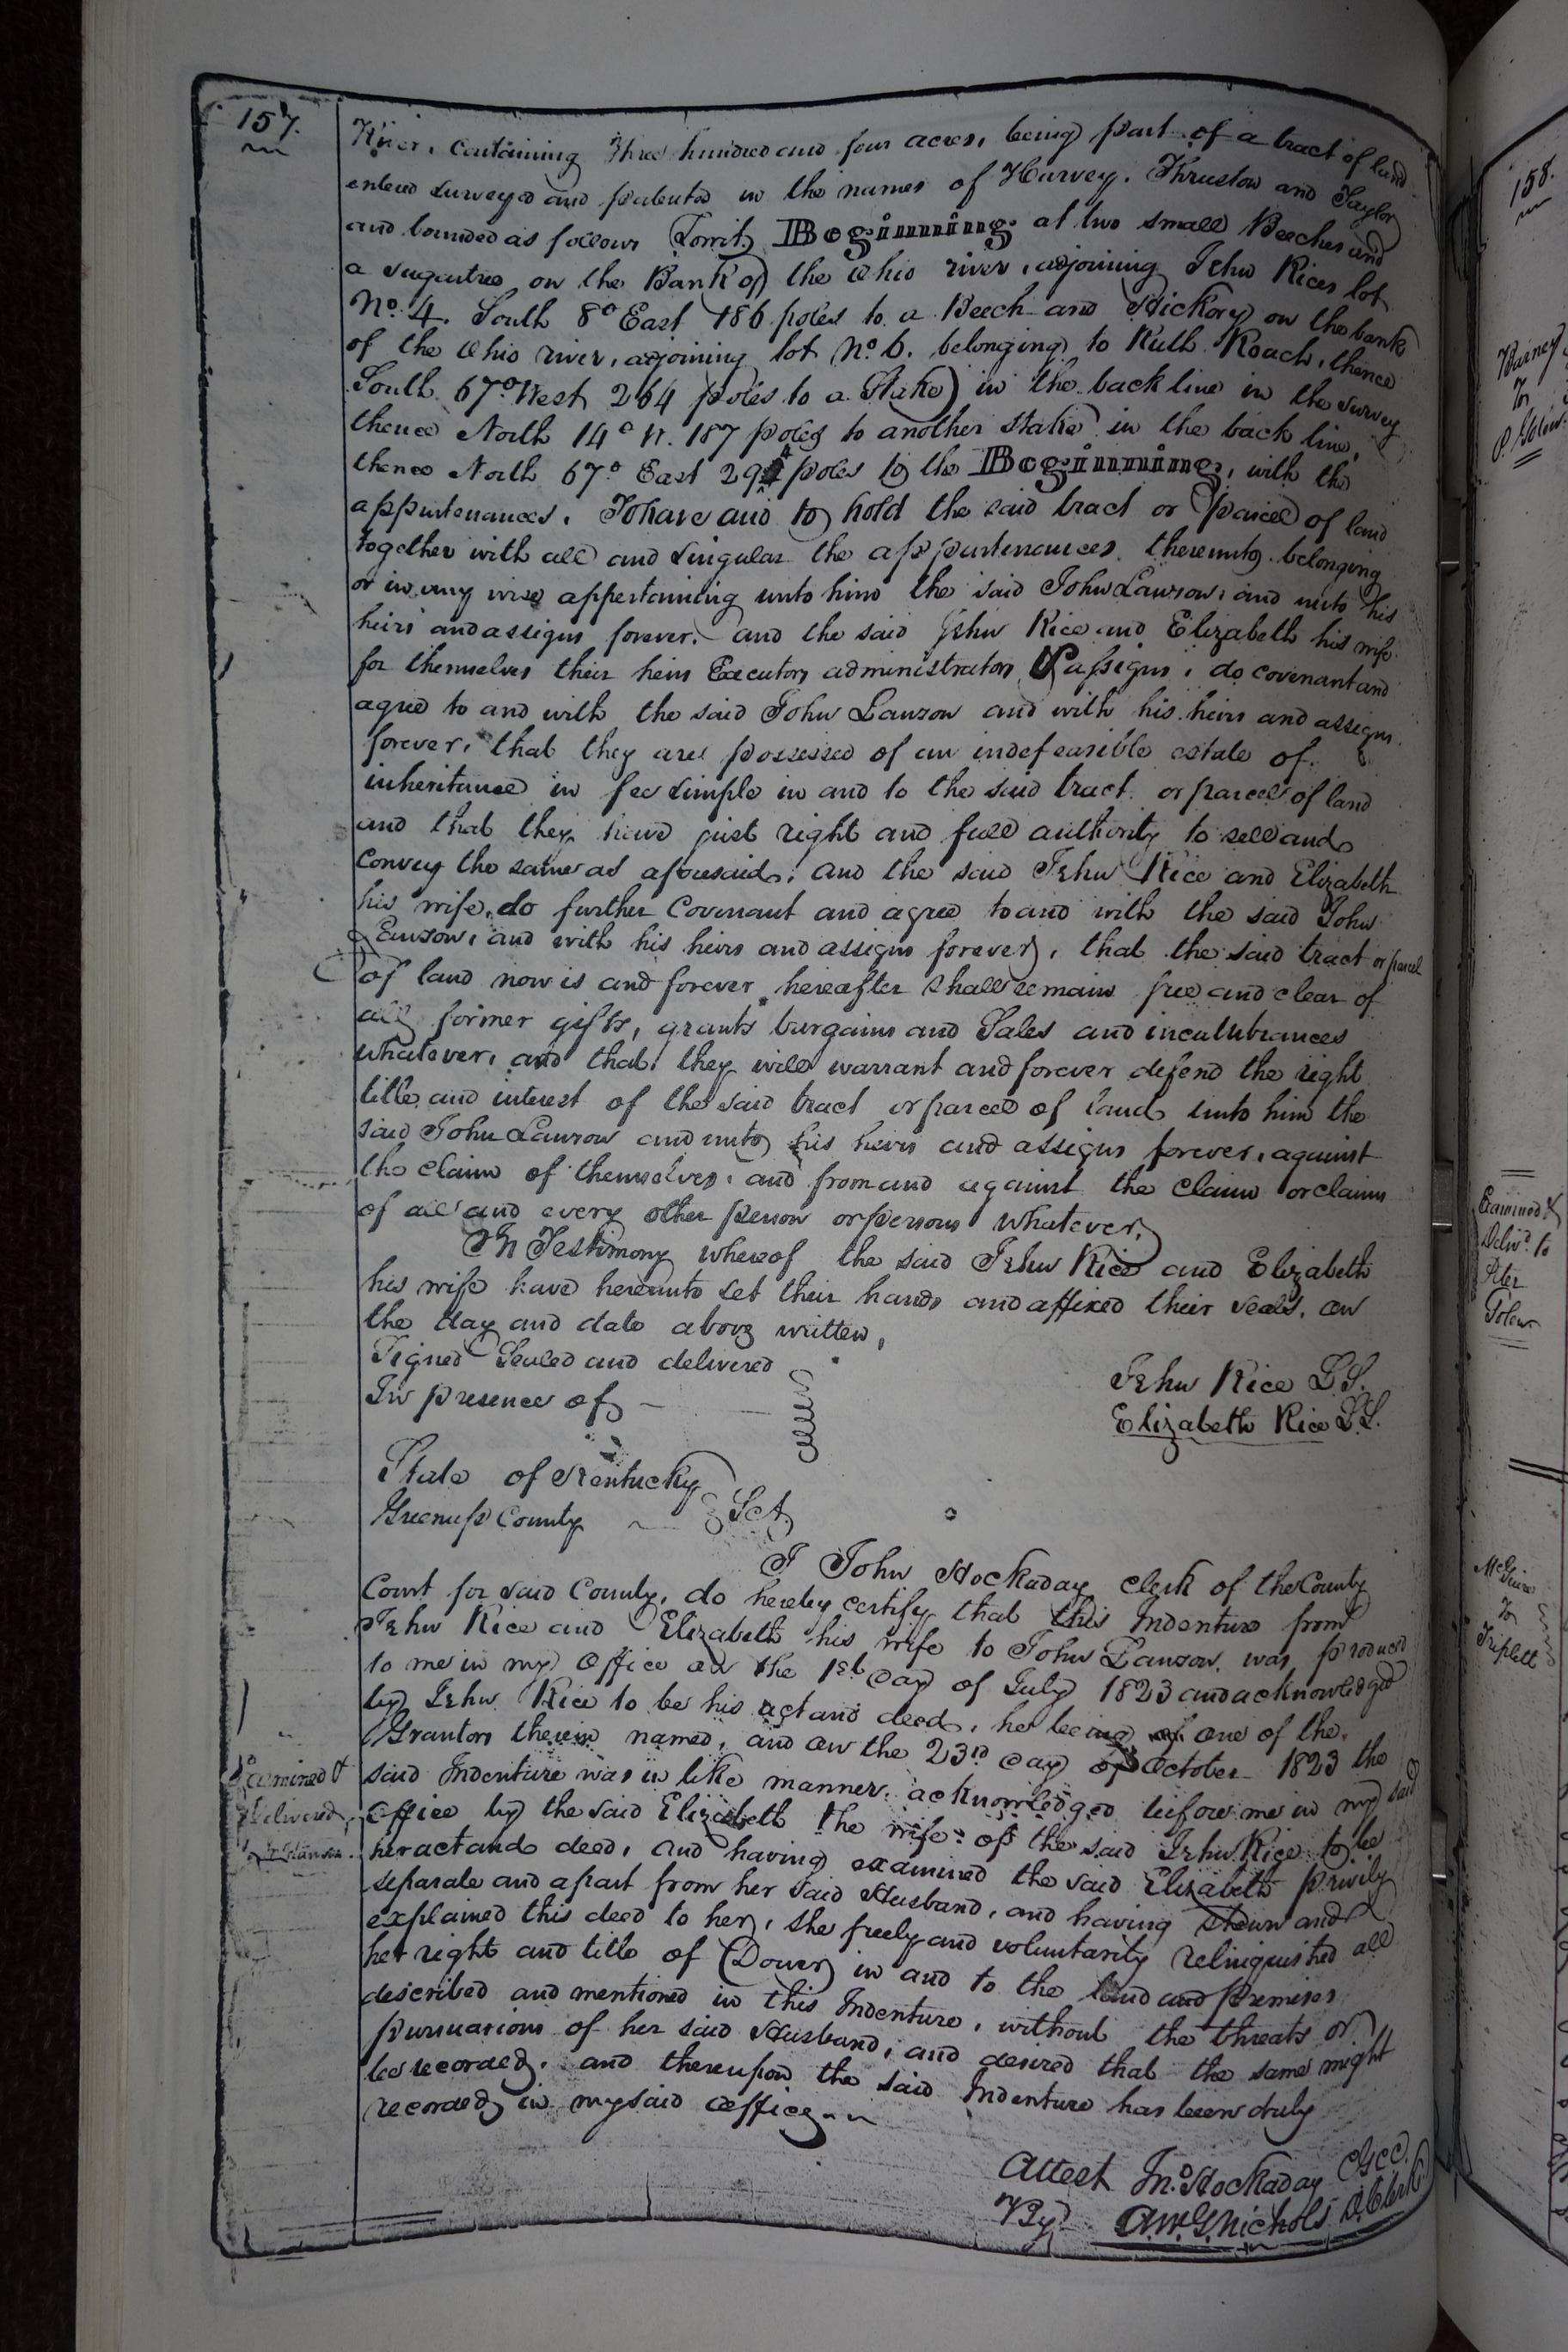 157.
River, containing three hundred and four acres, being part of a tract of land
entered surveyed and patented in the names of Harvey. Thruston and Taylor
and bounded as follows (Towit) Beginning at two small Beeches and
a sugartree on the Bank of the Ohio river, adjoining Jehu Rices lot
No. 4. South 8° East 186 poles to a Beech and Hickory on the bank
of the Ohio river, adjoining lot No. 6. belonging to Ruth Roach, thence
South 67° West 264 poles to a Stake in the back line in the survey
thence North 14° W. 187 poles to another stake in the back line,
thence North 67° East 294 poles to the Beginning, with the
appurtenances. To have and to hold the said tract or parcel of land
together with all and singular the appurtenances thereunto belonging
or in any wise appertaining unto him the said John Lawson, and unto his
heirs and assigns forever. and the said Jehu Rice and Elizabeth his wife
for themselves their heirs Executors administrators & assigns, do covenant and
agree to and with the said John Lawson and with his heirs and assigns
forever, that they are possessed of an indefeasible estate of
inheritance in fee simple in and to the said tract or parcel of land
and that they have just right and full authority to sell and
Convey the same as aforesaid, and the said Jehu Rice and Elizabeth
his wife, do further Covenant and agree to and with the said John
Lawson, and with his heirs and assigns forever, that the said tract or parcel
of land now is and forever hereafter shall remain free and clear of
all former gifts, grants bargains and Sales and incumbrances
whatever, and that they will warrant and forever defend the right
title and interest of the said tract or parcel of land unto him the
said John Lawson and unto his heirs and assigns forever, against
the claim of themselves, and from and against the claim or claims
of all and every other person or persons whatever,
In Testimony whereof the said Jehu Rice and Elizabeth
his wife have hereunto set their hands and affixed their seals, on
the day and date above written,
Signed Sealed and delivered
In presence of
Jehu Rice L.S.
Elizabeth Rice L.S.
State of Kentucky
Greenup County Sct.
I John Hockaday clerk of the County
Court for said County, do hereby certify that this Indenture from
Jehu Rice and Elizabeth his wife to John Lawson was produced
to me in my Office on the 1st day of July 1823 and acknowledged
by Jehu Rice to be his act and deed, he being one of the
Grantors therein named, and on the 23rd day of October 1823 the
said Indenture was in like manner acknowledged before me in my said
office by the said Elizabeth the wife of the said Jehu Rice to be
her act and deed, and having examined the said Elizabeth privily
separate and apart from her said Husband, and having shewn and
explained this deed to her, she freely and voluntarily relinquished all
her right and title of (Dower) in and to the land and premises
described and mentioned in this Indenture, without the threats or
pursuasions of her said Husband, and desired that the same might
be recorded, and thereupon the said Indenture has been duly
recorded in my said office
Attest Jno. Hockaday CGCC.
By A.W.G. Nichols D.Clerk
Examined &
Delivered
158.
To
Examined &
Deliv'd to
McGuire
To
Triplett